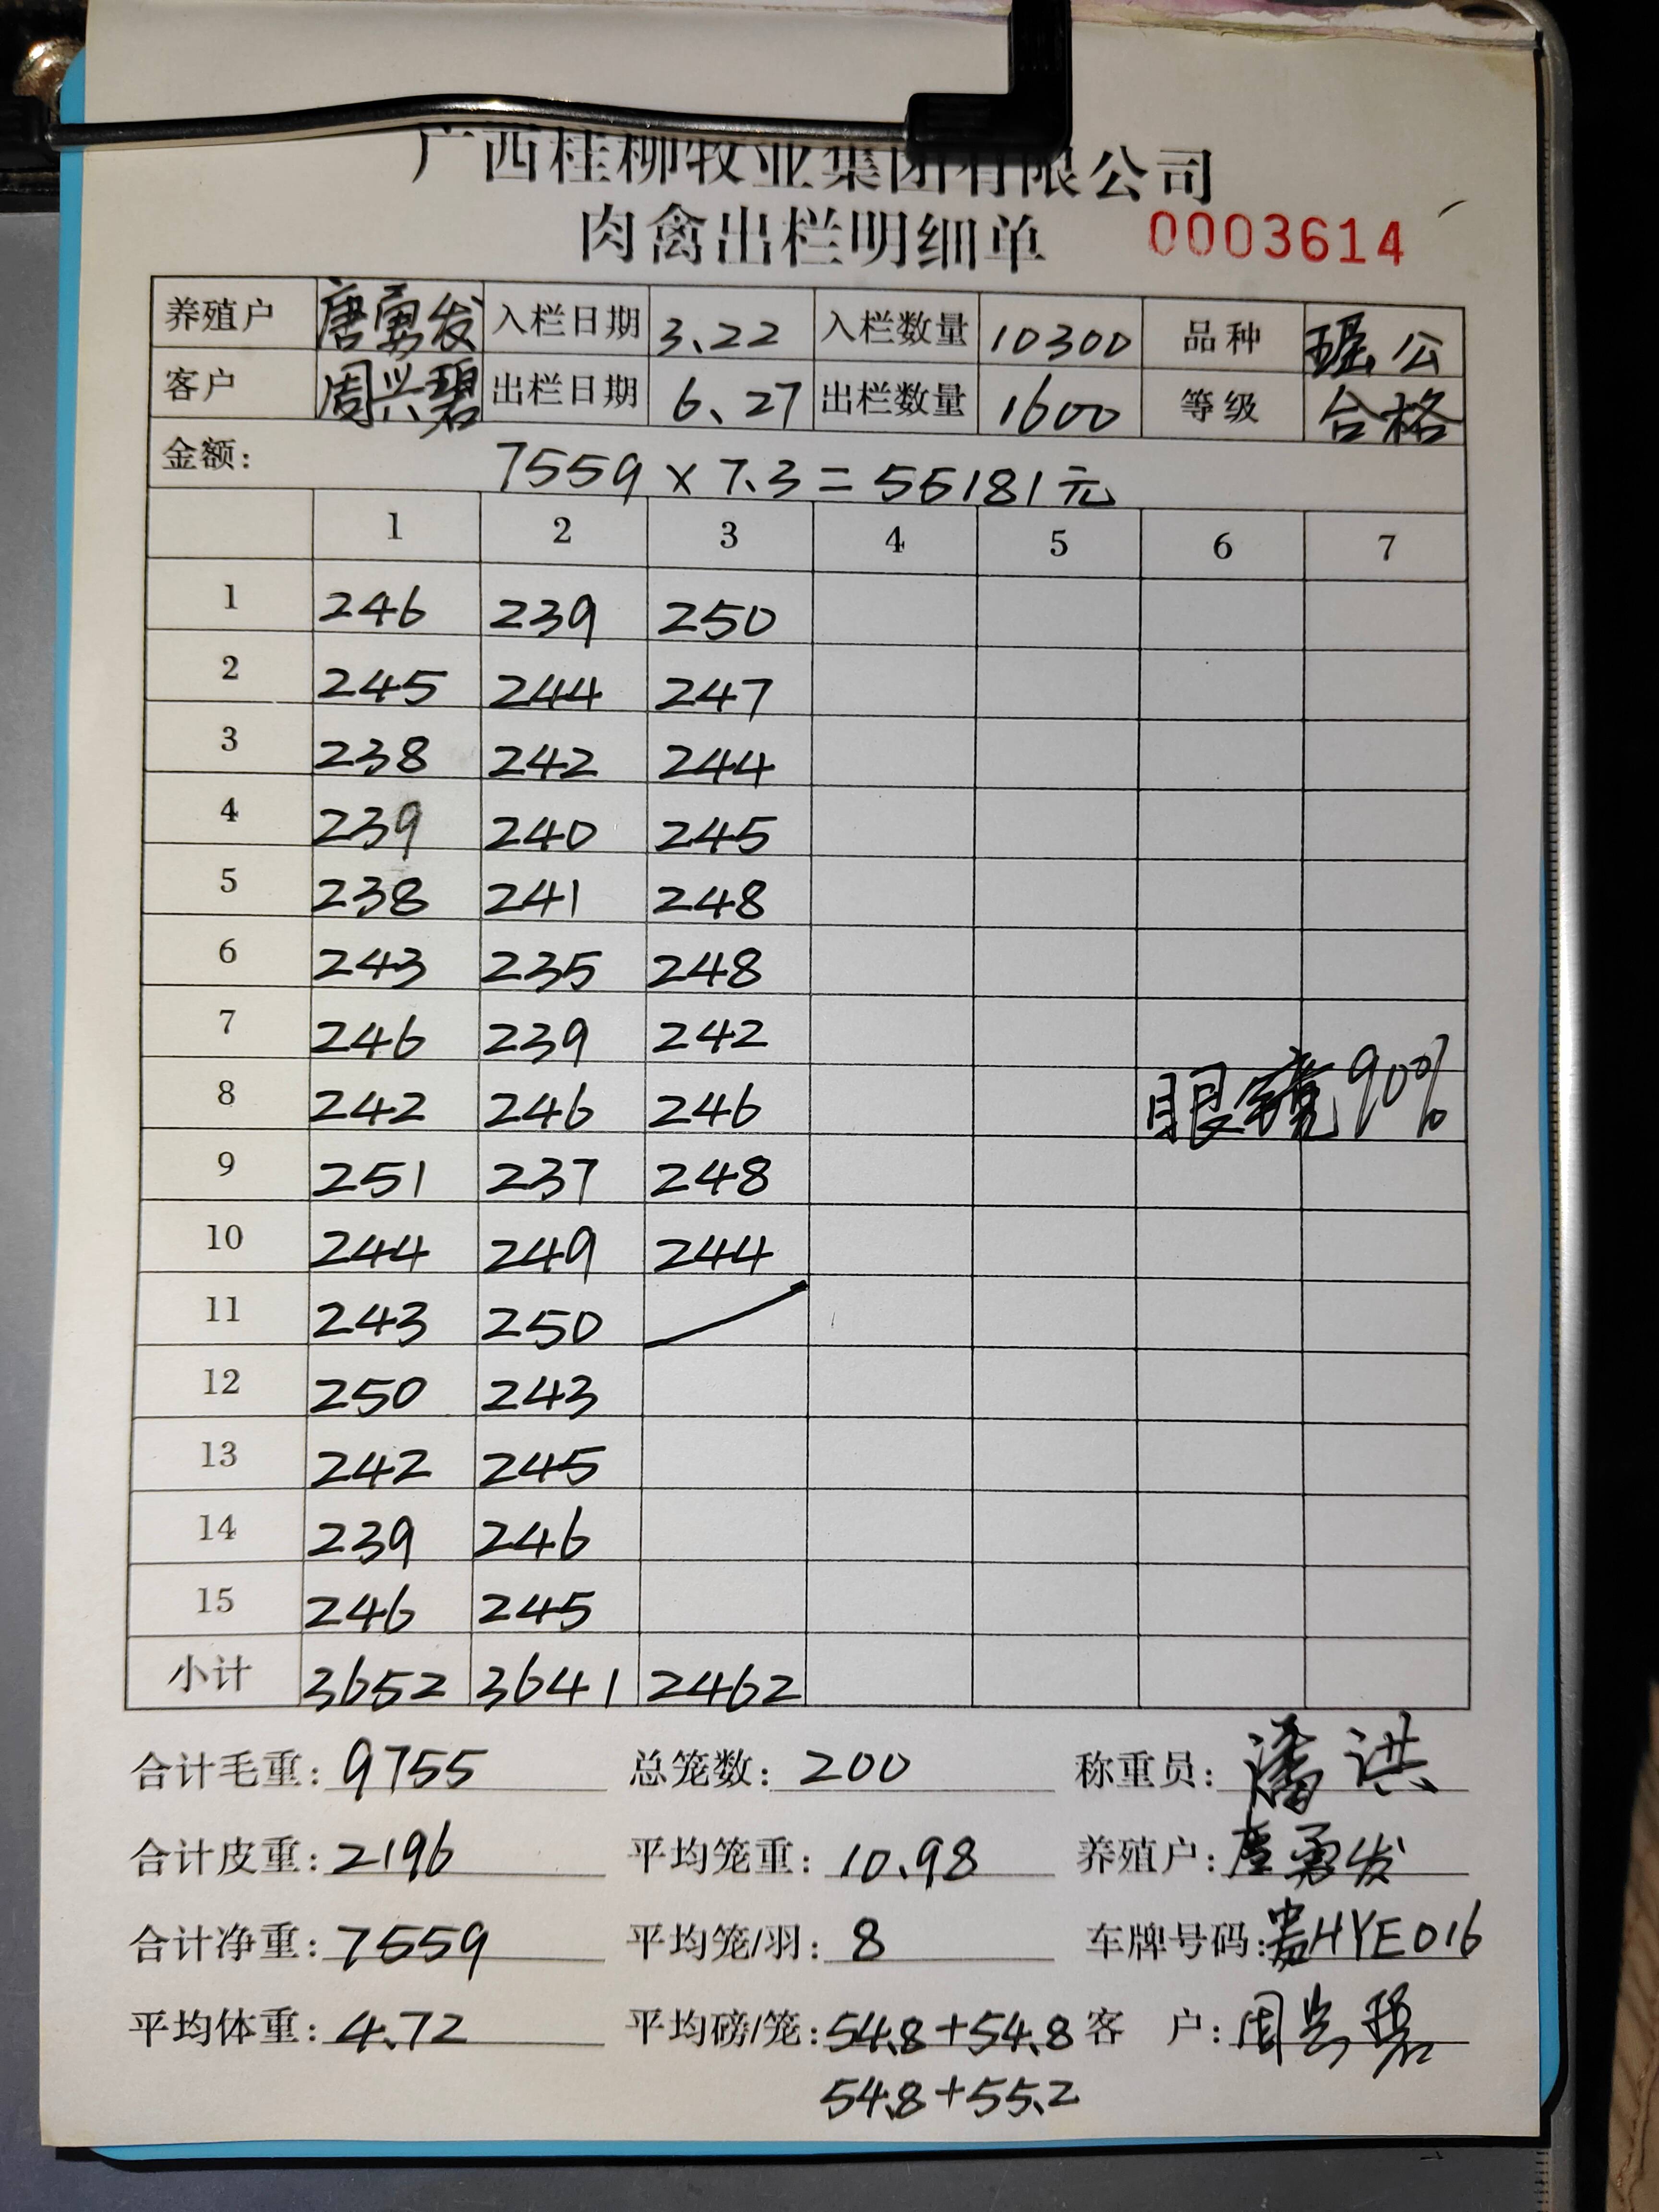 广西桂柳牧业集团有限公司
肉禽出栏明细单 0003614
养殖户 唐勇发 入栏日期 3.22 入栏数量 10300 品种 瑶公
客户 周兴碧 出栏日期 6.27 出栏数量 1600 等级 合格
金额: 7559×7.3=55181元
1 2 3 4 5 6 7
1 246 239 250
2 245 244 247
3 238 242 244
4 239 240 245
5 238 241 248
6 243 235 248
7 246 239 242
8 242 246 246 眼镜90%
9 251 237 248
10 244 249 244
11 243 250
12 250 243
13 242 245
14 239 246
15 246 245
小计 3652 3641 2462
合计毛重: 9755 总笼数: 200 称重员: 潘洪
合计皮重: 2196 平均笼重: 10.98 养殖户: 唐勇发
合计净重: 7559 平均笼/羽: 8 车牌号码: 贵HYE016
平均体重: 4.72 平均磅/笼: 54.8+54.8 客 户: 周兴碧
54.8+55.2